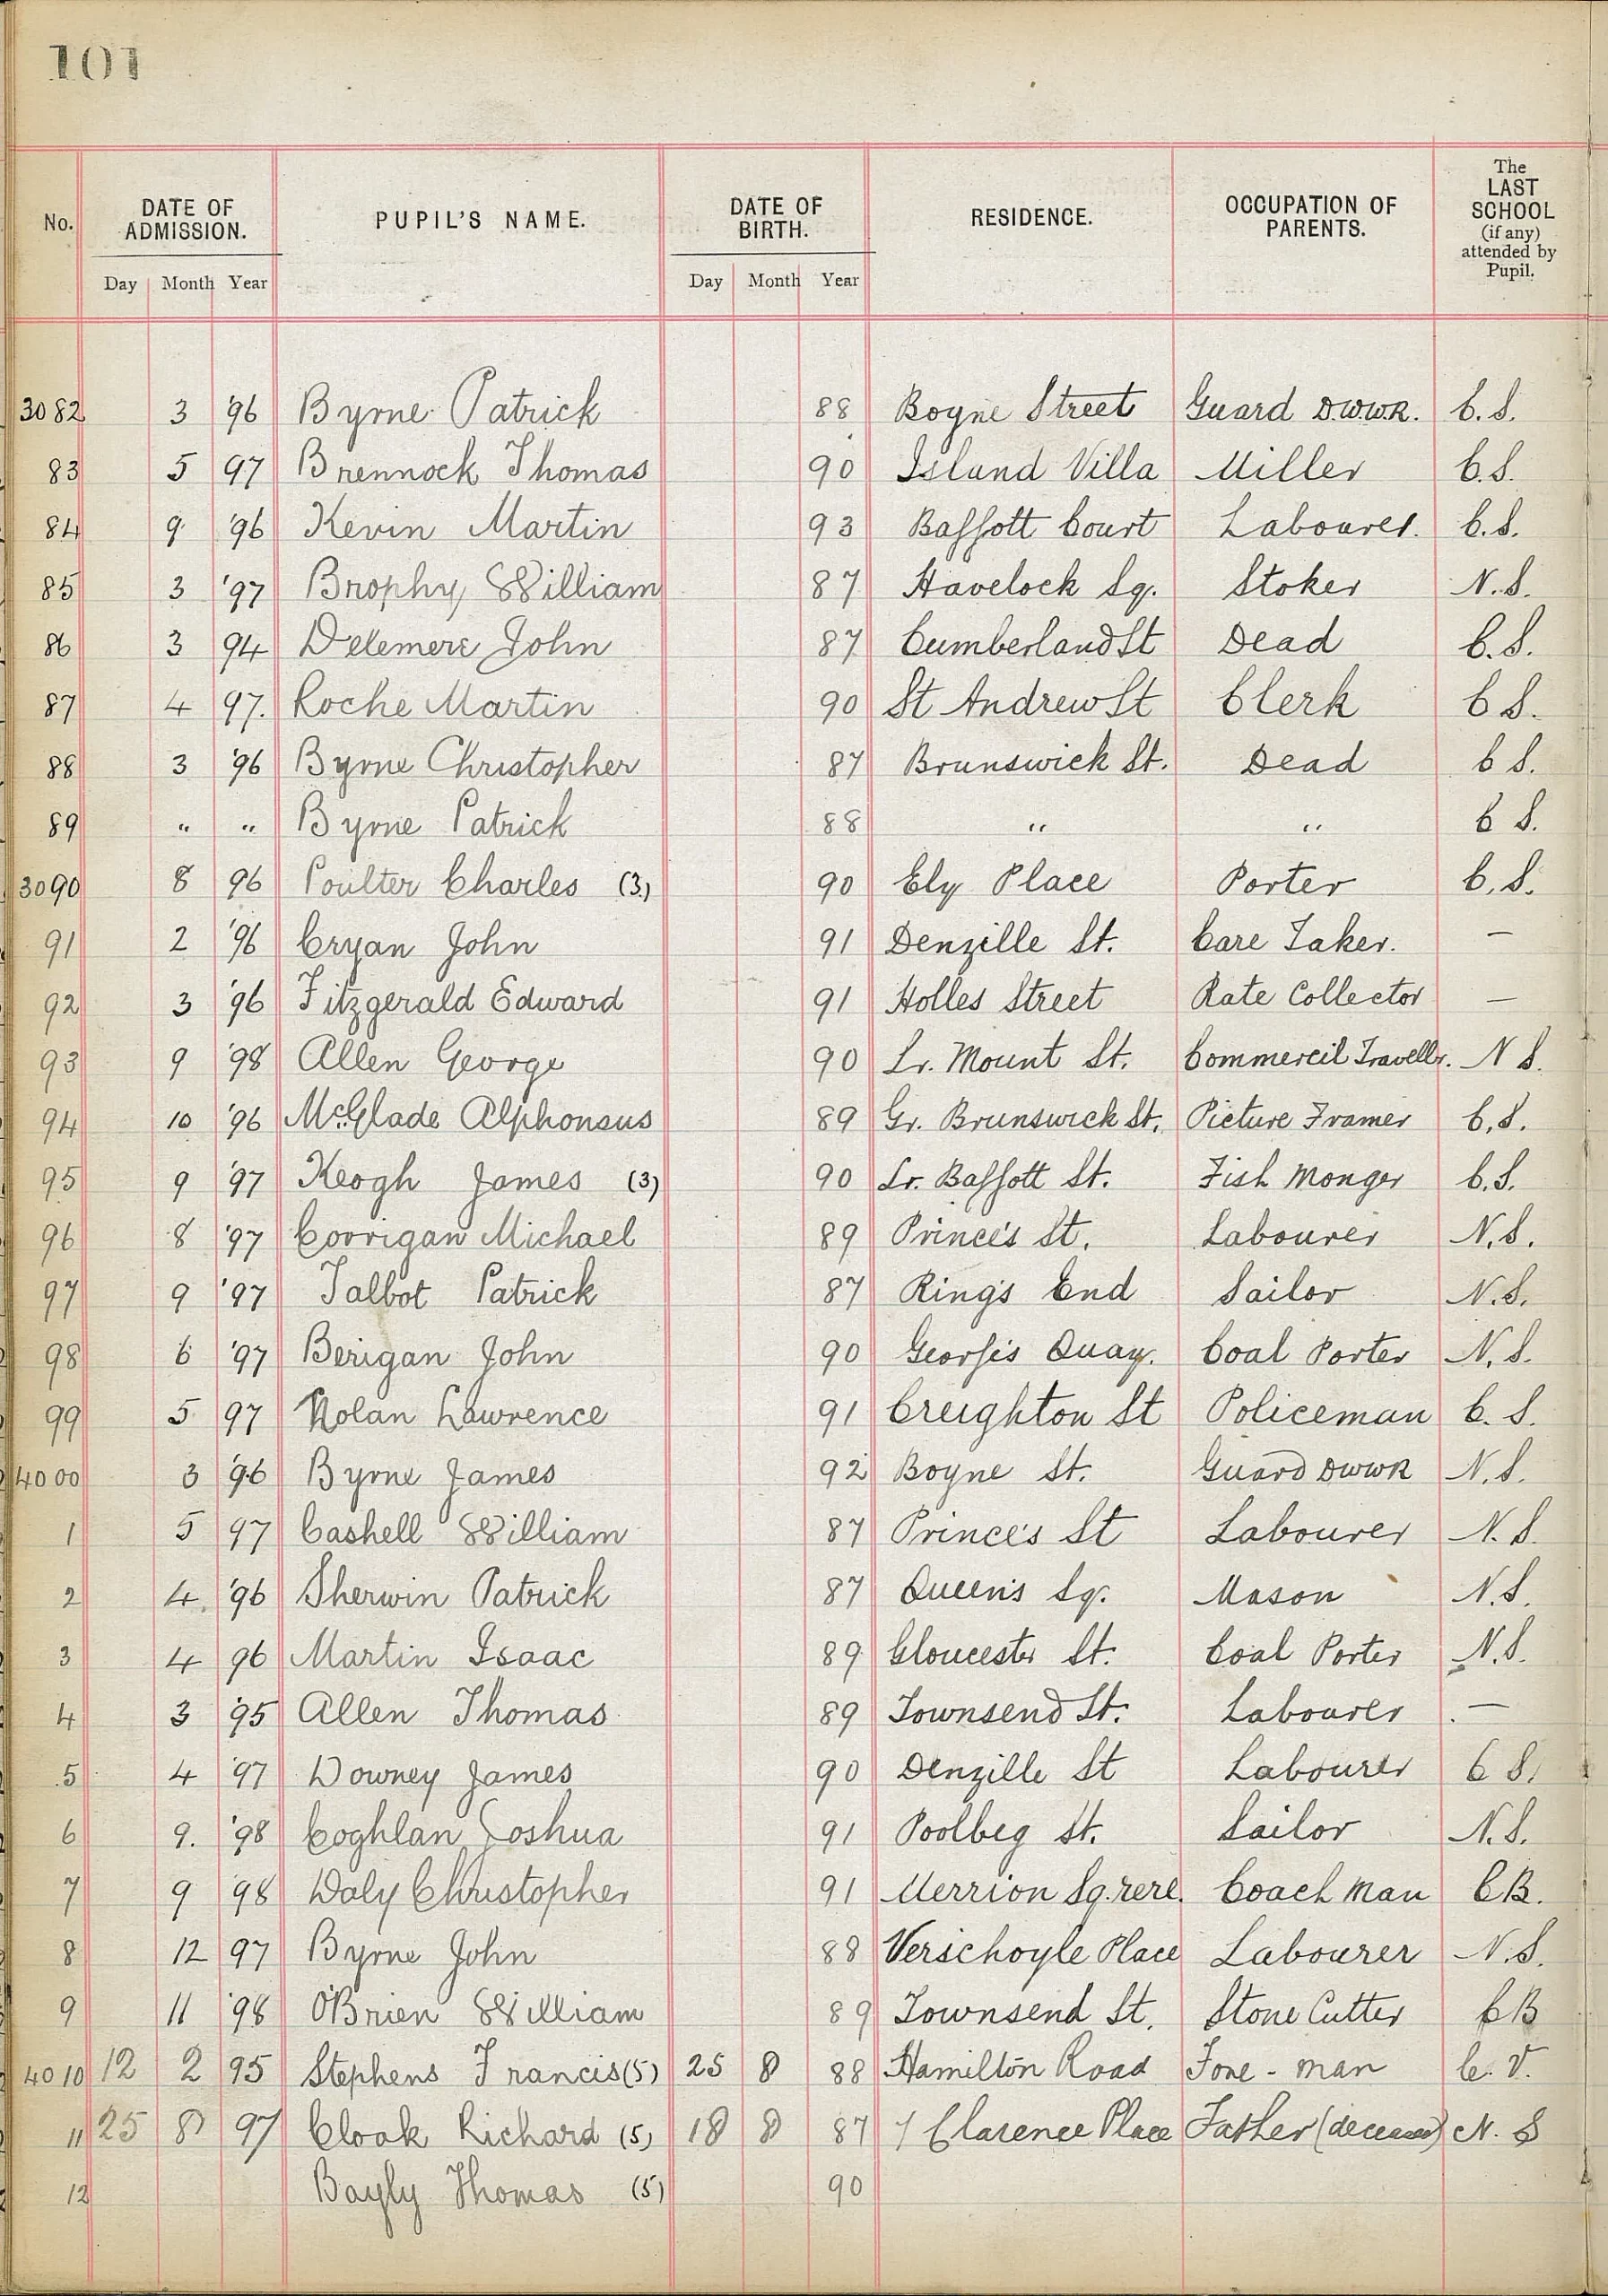 101
No. DATE OF ADMISSION. PUPIL'S NAME. DATE OF BIRTH. RESIDENCE. OCCUPATION OF PARENTS. The LAST SCHOOL (if any) attended by Pupil.
Day Month Year Day Month Year
3082 3 '96 Byrne Patrick 88 Boyne Street Guard D.W.W.R. C.S.
83 5 97 Brennock Thomas 90 Island Villa Miller C.S.
84 9 '96 Kevin Martin 93 Baggott Court Labourer. C.S.
85 3 '97 Brophy William 87 Havelock Sq. Stoker N.S.
86 3 94 Delemere John 87 Cumberland St Dead C.S.
87 4 97. Roche Martin 90 St Andrew St Clerk C S.
88 3 '96 Byrne Christopher 87 Brunswick St. Dead C S.
89 " " Byrne Patrick 88 " " C S.
3090 8 96 Poulter Charles (3) 90 Ely Place Porter C.S.
91 2 '96 Cryan John 91 Denzille St. Care Taker. —
92 3 '96 Fitzgerald Edward 91 Holles Street Rate Collector —
93 9 '98 Allen George 90 Lr. Mount St. Commercil Travellr. N S.
94 10 '96 McGlade Alphonsus 89 Gr. Brunswick St. Picture Framer C.S.
95 9 '97 Keogh James (3) 90 Lr. Baggott St. Fish Monger C.S.
96 8 '97 Corrigan Michael 89 Prince's St. Labourer N.S.
97 9 '97 Talbot Patrick 87 Ring's End Sailor N.S.
98 6 '97 Berigan John 90 George's Quay. Coal Porter N.S.
99 5 97 Nolan Lawrence 91 Creighton St Policeman C.S.
4000 3 '96 Byrne James 92 Boyne St. Guard DWWR N.S.
1 5 97 Cashell William 87 Prince's St Labourer N.S.
2 4 '96 Sherwin Patrick 87 Queen's Sq. Mason N.S.
3 4 96 Martin Isaac 89 Gloucester St. Coal Porter N.S.
4 3 '95 Allen Thomas 89 Townsend St. Labourer —
5 4 '97 Downey James 90 Denzille St Labourer C S.
6 9. '98 Coghlan Joshua 91 Poolbeg St. Sailor N.S.
7 9 '98 Daly Christopher 91 Merrion Sq. rere. Coach man C B.
8 12 97 Byrne John 88 Verschoyle Place Labourer N.S.
9 11 '98 O'Brien William 89 Townsend St. Stone Cutter C B
4010 12 2 95 Stephens Francis (5) 25 8 88 Hamilton Road Fore-man C.V.
11 25 8 97 Cloak Richard (5) 18 8 87 7 Clarence Place Father (deceased) N.S
12 Bayly Thomas (5) 90